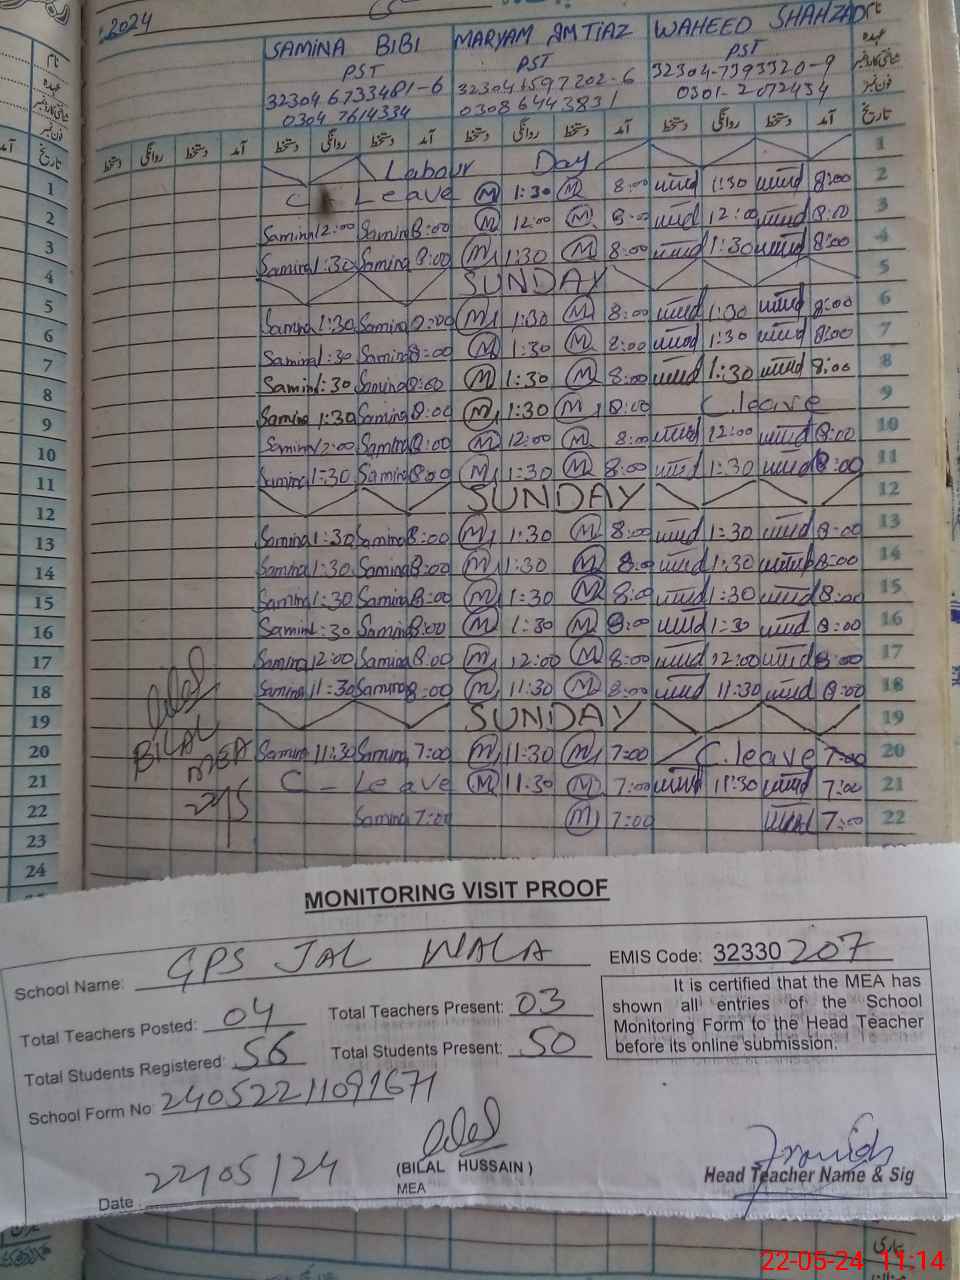 2024
SAMINA BIBI MARYAM IMTIAZ WAHEED SHAHZAD
PST PST PST
0304 7614334 03086443831
دستخط روانگی دستخط آمد دستخط روانگی دستخط آمد دستخط روانگی دستخط آمد دستخط روانگی دستخط آمد تاریخ
Labour Day 1
1 C Leave M 1:30 M 8:00 1:30 8:00 2
2 Samina 12:00 Samina 8:00 M 12:00 M 8:00 12:00 8:00 3
3 Samina 1:30 Samina 8:00 M 1:30 M 8:00 1:30 8:00 4
4 SUNDAY 5
5 Samina 1:30 Samina 8:00 M 1:30 M 8:00 1:30 8:00 6
6 Samina 1:30 Samina 8:00 M 1:30 M 8:00 1:30 8:00 7
7 Samina 1:30 Samina 8:00 M 1:30 M 8:00 1:30 8:00 8
8 Samina 1:30 Samina 8:00 M 1:30 M 8:00 C.leave 9
9 Samina 12:00 Samina 8:00 M 12:00 M 8:00 12:00 8:00 10
10 Samina 1:30 Samina 8:00 M 1:30 M 8:00 1:30 8:00 11
11 SUNDAY 12
12 Samina 1:30 Samina 8:00 M 1:30 M 8:00 1:30 8:00 13
13 Samina 1:30 Samina 8:00 M 1:30 M 8:00 1:30 8:00 14
14 Samina 1:30 Samina 8:00 M 1:30 M 8:00 1:30 8:00 15
15 Samina 1:30 Samina 8:00 M 1:30 M 8:00 1:30 8:00 16
16 Samina 12:00 Samina 8:00 M 12:00 M 8:00 12:00 8:00 17
17 Samina 11:30 Samina 8:00 M 11:30 M 8:00 11:30 8:00 18
18 SUNDAY 19
19 Samina 11:30 Samina 7:00 M 11:30 M 7:00 C.leave 7:00 20
20 C - Leave M 11:30 M 7:00 11:30 7:00 21
21 Samina 7:00 M 7:00 7:00 22
22
23
24
BILAL
MEA
22/5
MONITORING VISIT PROOF
School Name: GPS JAL WALA EMIS Code: 32330207
Total Teachers Posted: 04 Total Teachers Present: 03
Total Students Registered: 56 Total Students Present: 50
It is certified that the MEA has
shown all entries of the School
Monitoring Form to the Head Teacher
before its online submission.
School Form No: 24052211091671
(BILAL HUSSAIN)
MEA
Date 22/05/24
Head Teacher Name & Sig
22-05-24 11:14